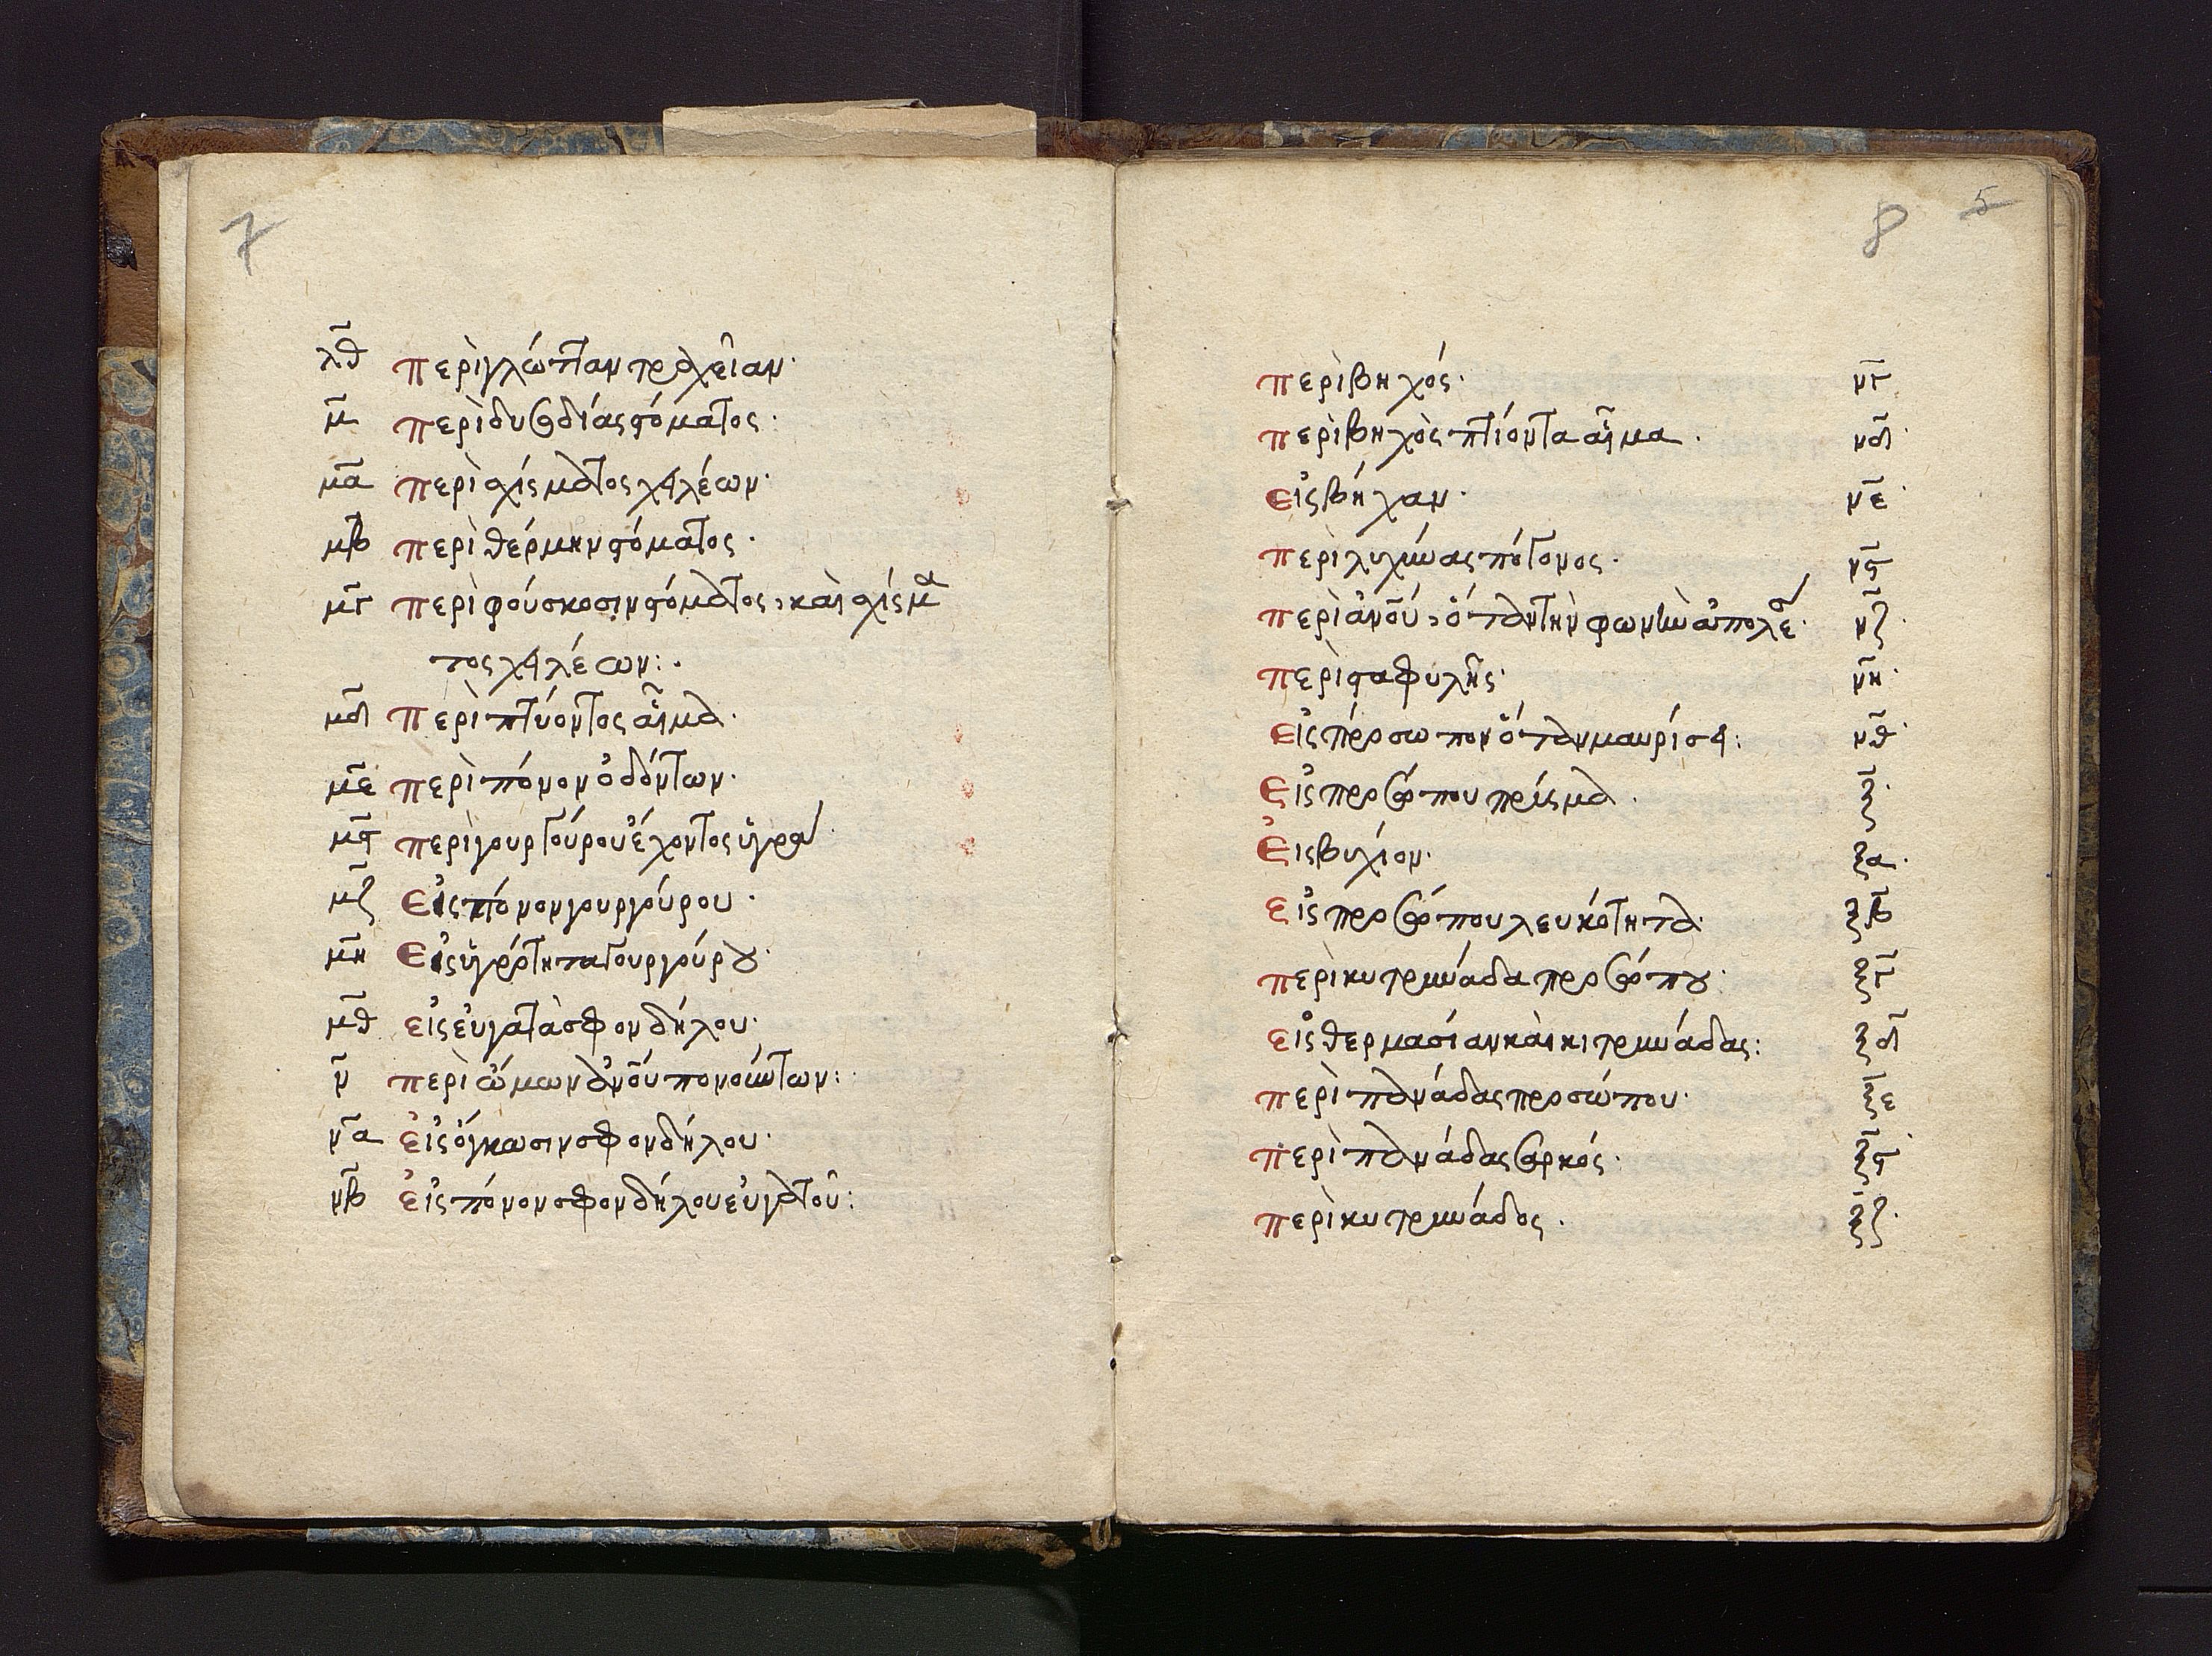 7
λθ περὶ γλώτταν τραχεῖαν·
μ περὶ δυσωδίας στόματος:
μα περὶ σχίσματος χειλέων·
μβ περὶ θέρμην στόματος·
μγ περὶ φούσκοσιν στόματος, καὶ σχίσμα
τος χειλέων:·
μδ Περὶ πτύοντος αἷμα·
με περὶ πόνον ὀδόντων·
μϛ περὶ γουργούρου ἔχοντος ὑγρα
μζ Εἰς πόνον γουργούρου·
μη Εἰς ὑγρότητα γουργούρου·
μθ εἰς ἐυγατὰ σφονδήλου·
ν περὶ ὤμων ἀνοῦ πονούντων:
να εἰς ὄγκωσιν σφονδήλου·
νβ εἰς πόνον σφονδήλου ἐυγατοῦ:
8 5
περὶ βηχός· νγ
περὶ βηχὸς πτίοντα αἷμα· νδ
εἰς βήχαν· νε
περὶ πότονος· νϛ
περὶ ἀνοῦ, ὅταν τὴν φωνὴν ἀπολε νζ
περὶ σταφυλῆς· νη
εἰς πρόσωπον ὅταν μαυρίσει: νθ
Εἰς προσώπου πρίσμα· ξ
Εἰς βυχίον· ξα
εἰς προσώπου λευκότητα· ξβ
περὶ κυτρινάδα προσώπου· ξγ
εἰς θερμασίαν καὶ κιτρινάδας: ξδ
περὶ πανάδας προσώπου· ξε
περὶ πανάδας σαρκός· ξϛ
περὶ κυτρινάδος· ξζ